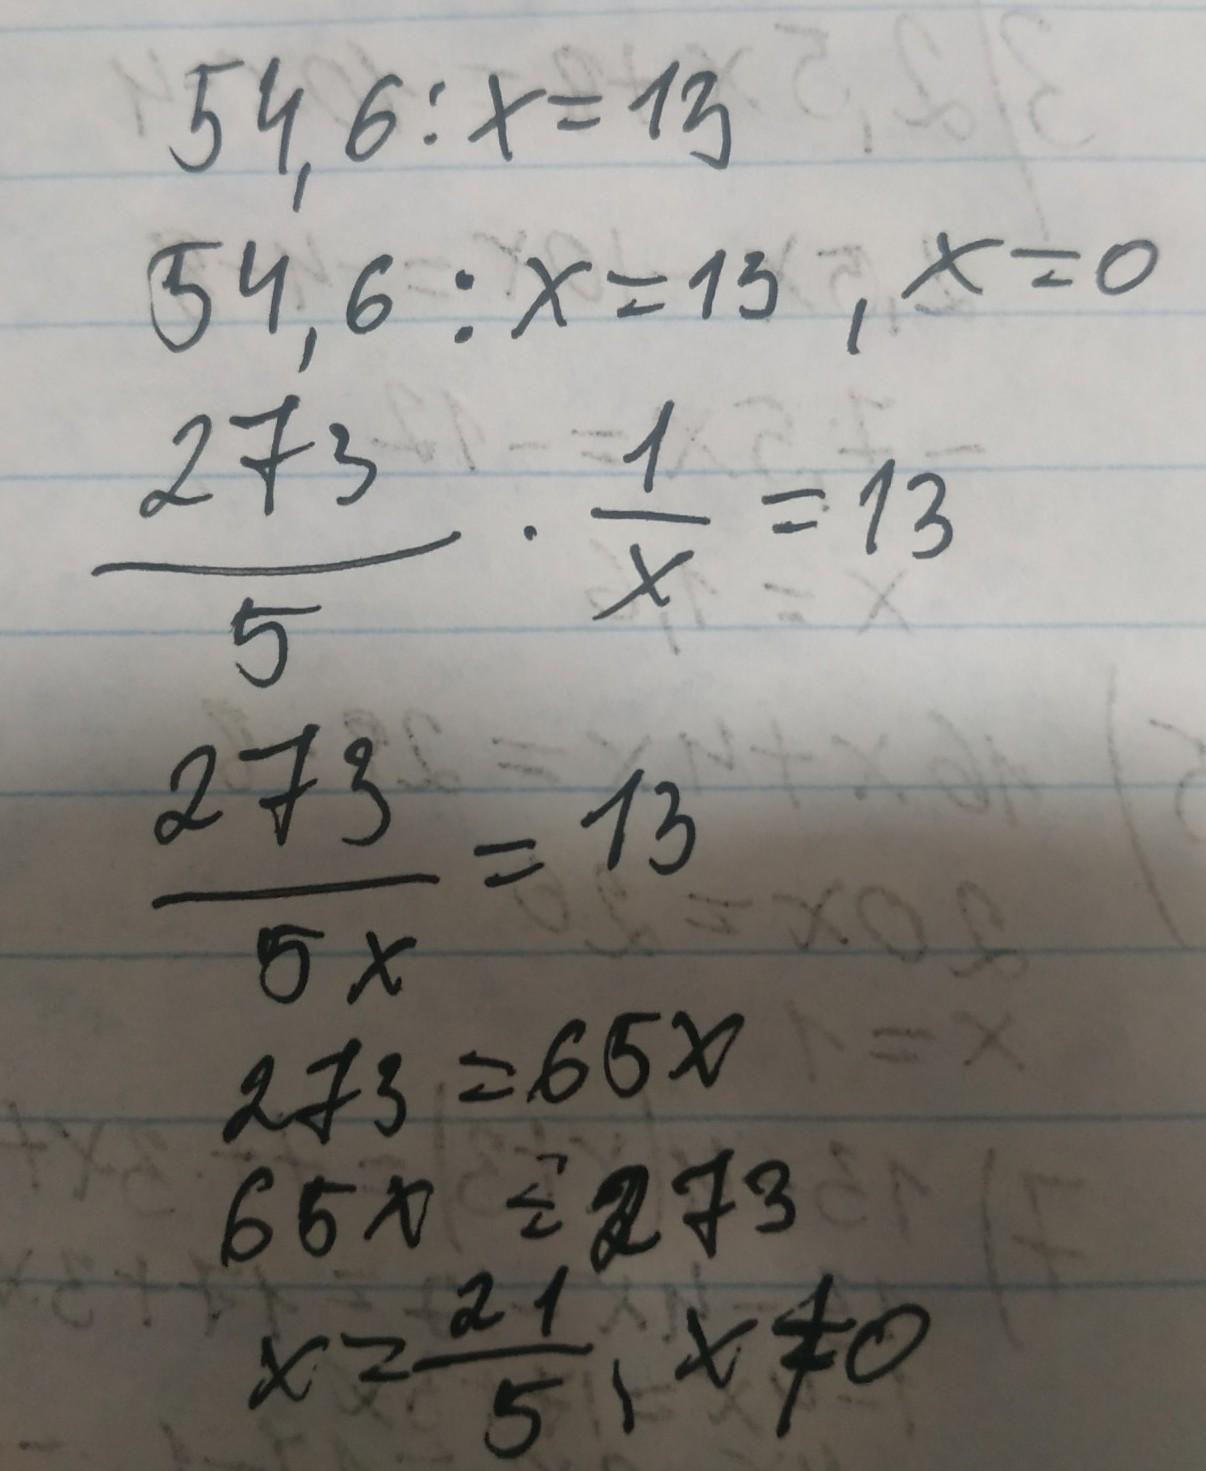 54,6:x=13
54,6:x=13, x=0
273/5 · 1/x = 13
273/5x = 13
273=65x
65x=273
x=21/5, x≠0